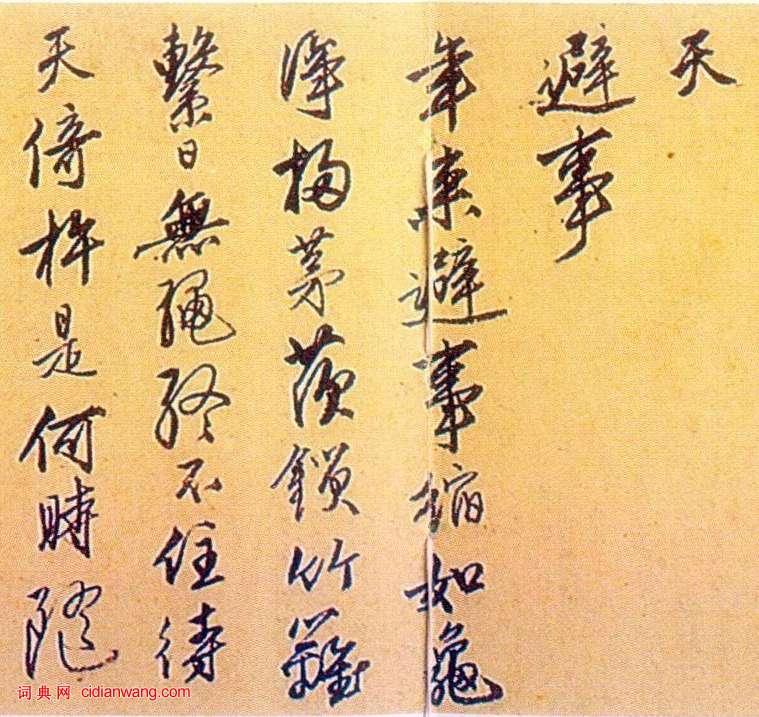 天
避事
年來避事縮如龜
淨掃茅茨鎖竹籬
繫日無繩終不住待
天倚杵是何時隨
词典网 cidianwang.com